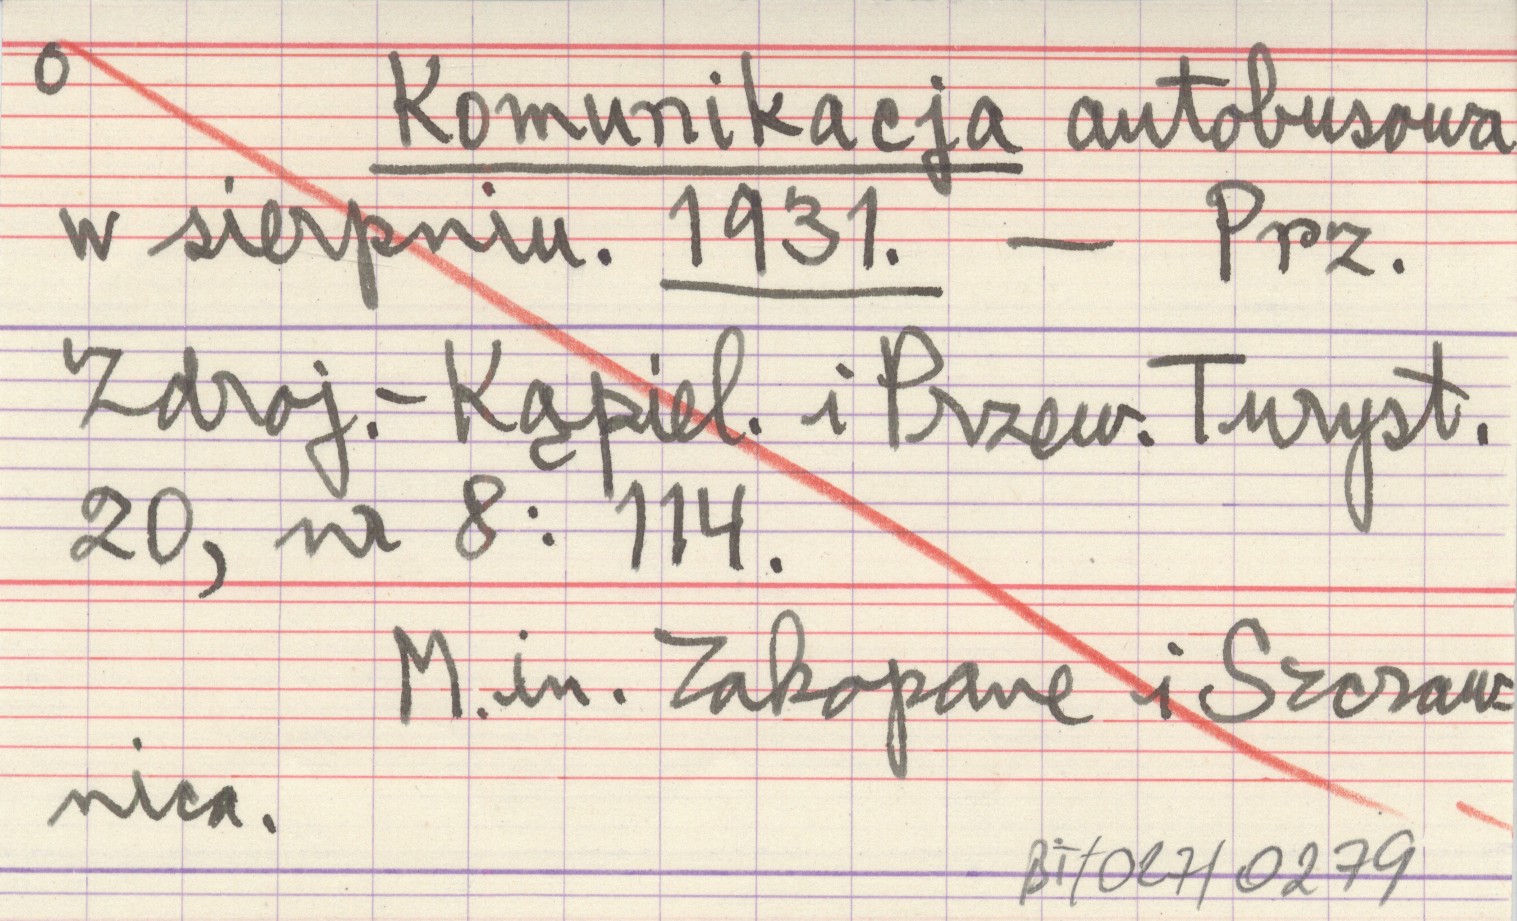 o Komunikacja autobusowa
w sierpniu. 1931. — Prz.
Zdroj.-Kąpiel. i Przew. Turyst.
20, nr 8: 114.
M.in. Zakopane i Szczaw-
nica.
BT/027/0279